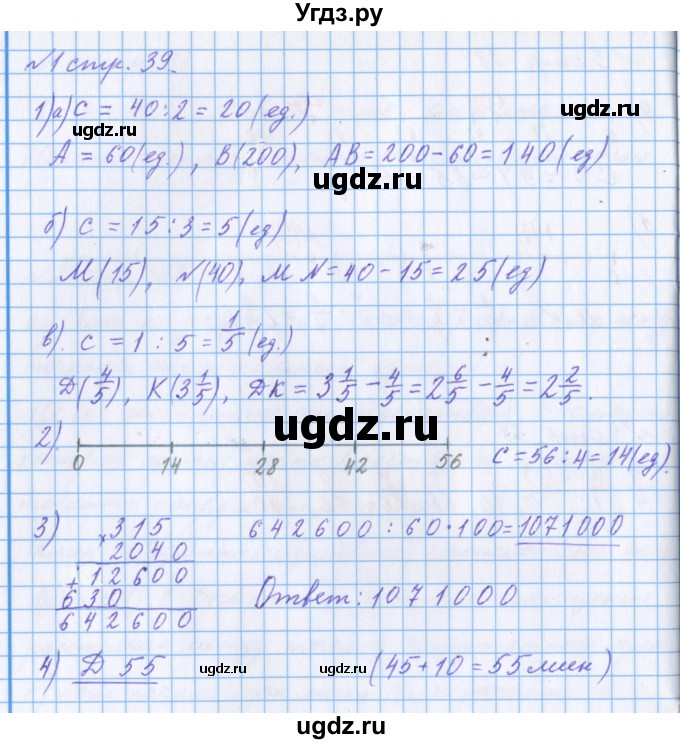 Угдз.ру
№1 стр. 39
1) а) С = 40:2 = 20 (ед.)
ugdz.ru
ugdz.ru
А = 60(ед), В(200), АВ = 200 - 60 = 140 (ед)
ugdz.ru
б) С = 15 : 3 = 5 (ед)
М(15), N(40), МN = 40 - 15 = 25 (ед)
в). С = 1 : 5 = 1/5 (ед.)
Д(4/5), К(3 1/5), ДК = 3 1/5 - 4/5 = 2 6/5 - 4/5 = 2 2/5.
ugdz.ru
2)
0 14 28 42 56 С = 56 : 4 = 14 (ед).
3) × 315 642600 : 60 · 100 = 1071000
2040
+ 12600
630 Ответ: 1071000
642600
4) Д 55 (45 + 10 = 55 мин)
ugdz.ru ugdz.ru
ugdz.ru